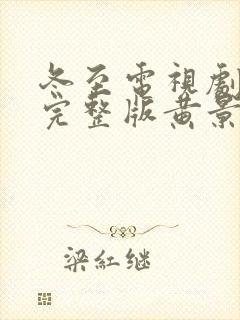 冬至電視劇
完整版黄景
梁紅继